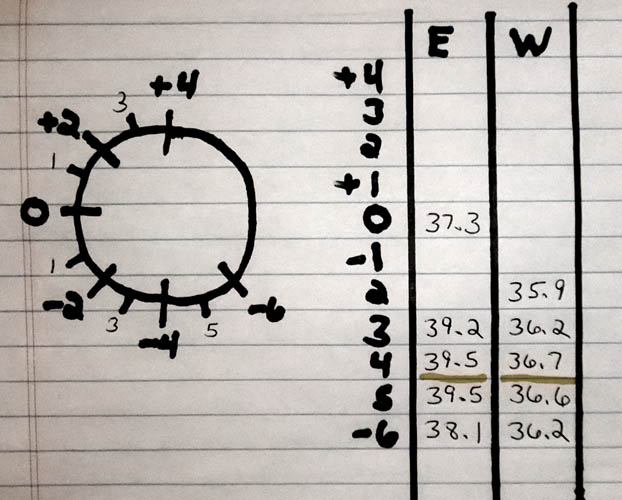 +4
3
+2
1
0
1
-2
3
-4
5
-6
E W
+4
3
2
+1
0 37.3
-1
2 35.9
3 39.2 36.2
4 39.5 36.7
5 39.5 36.6
-6 38.1 36.2